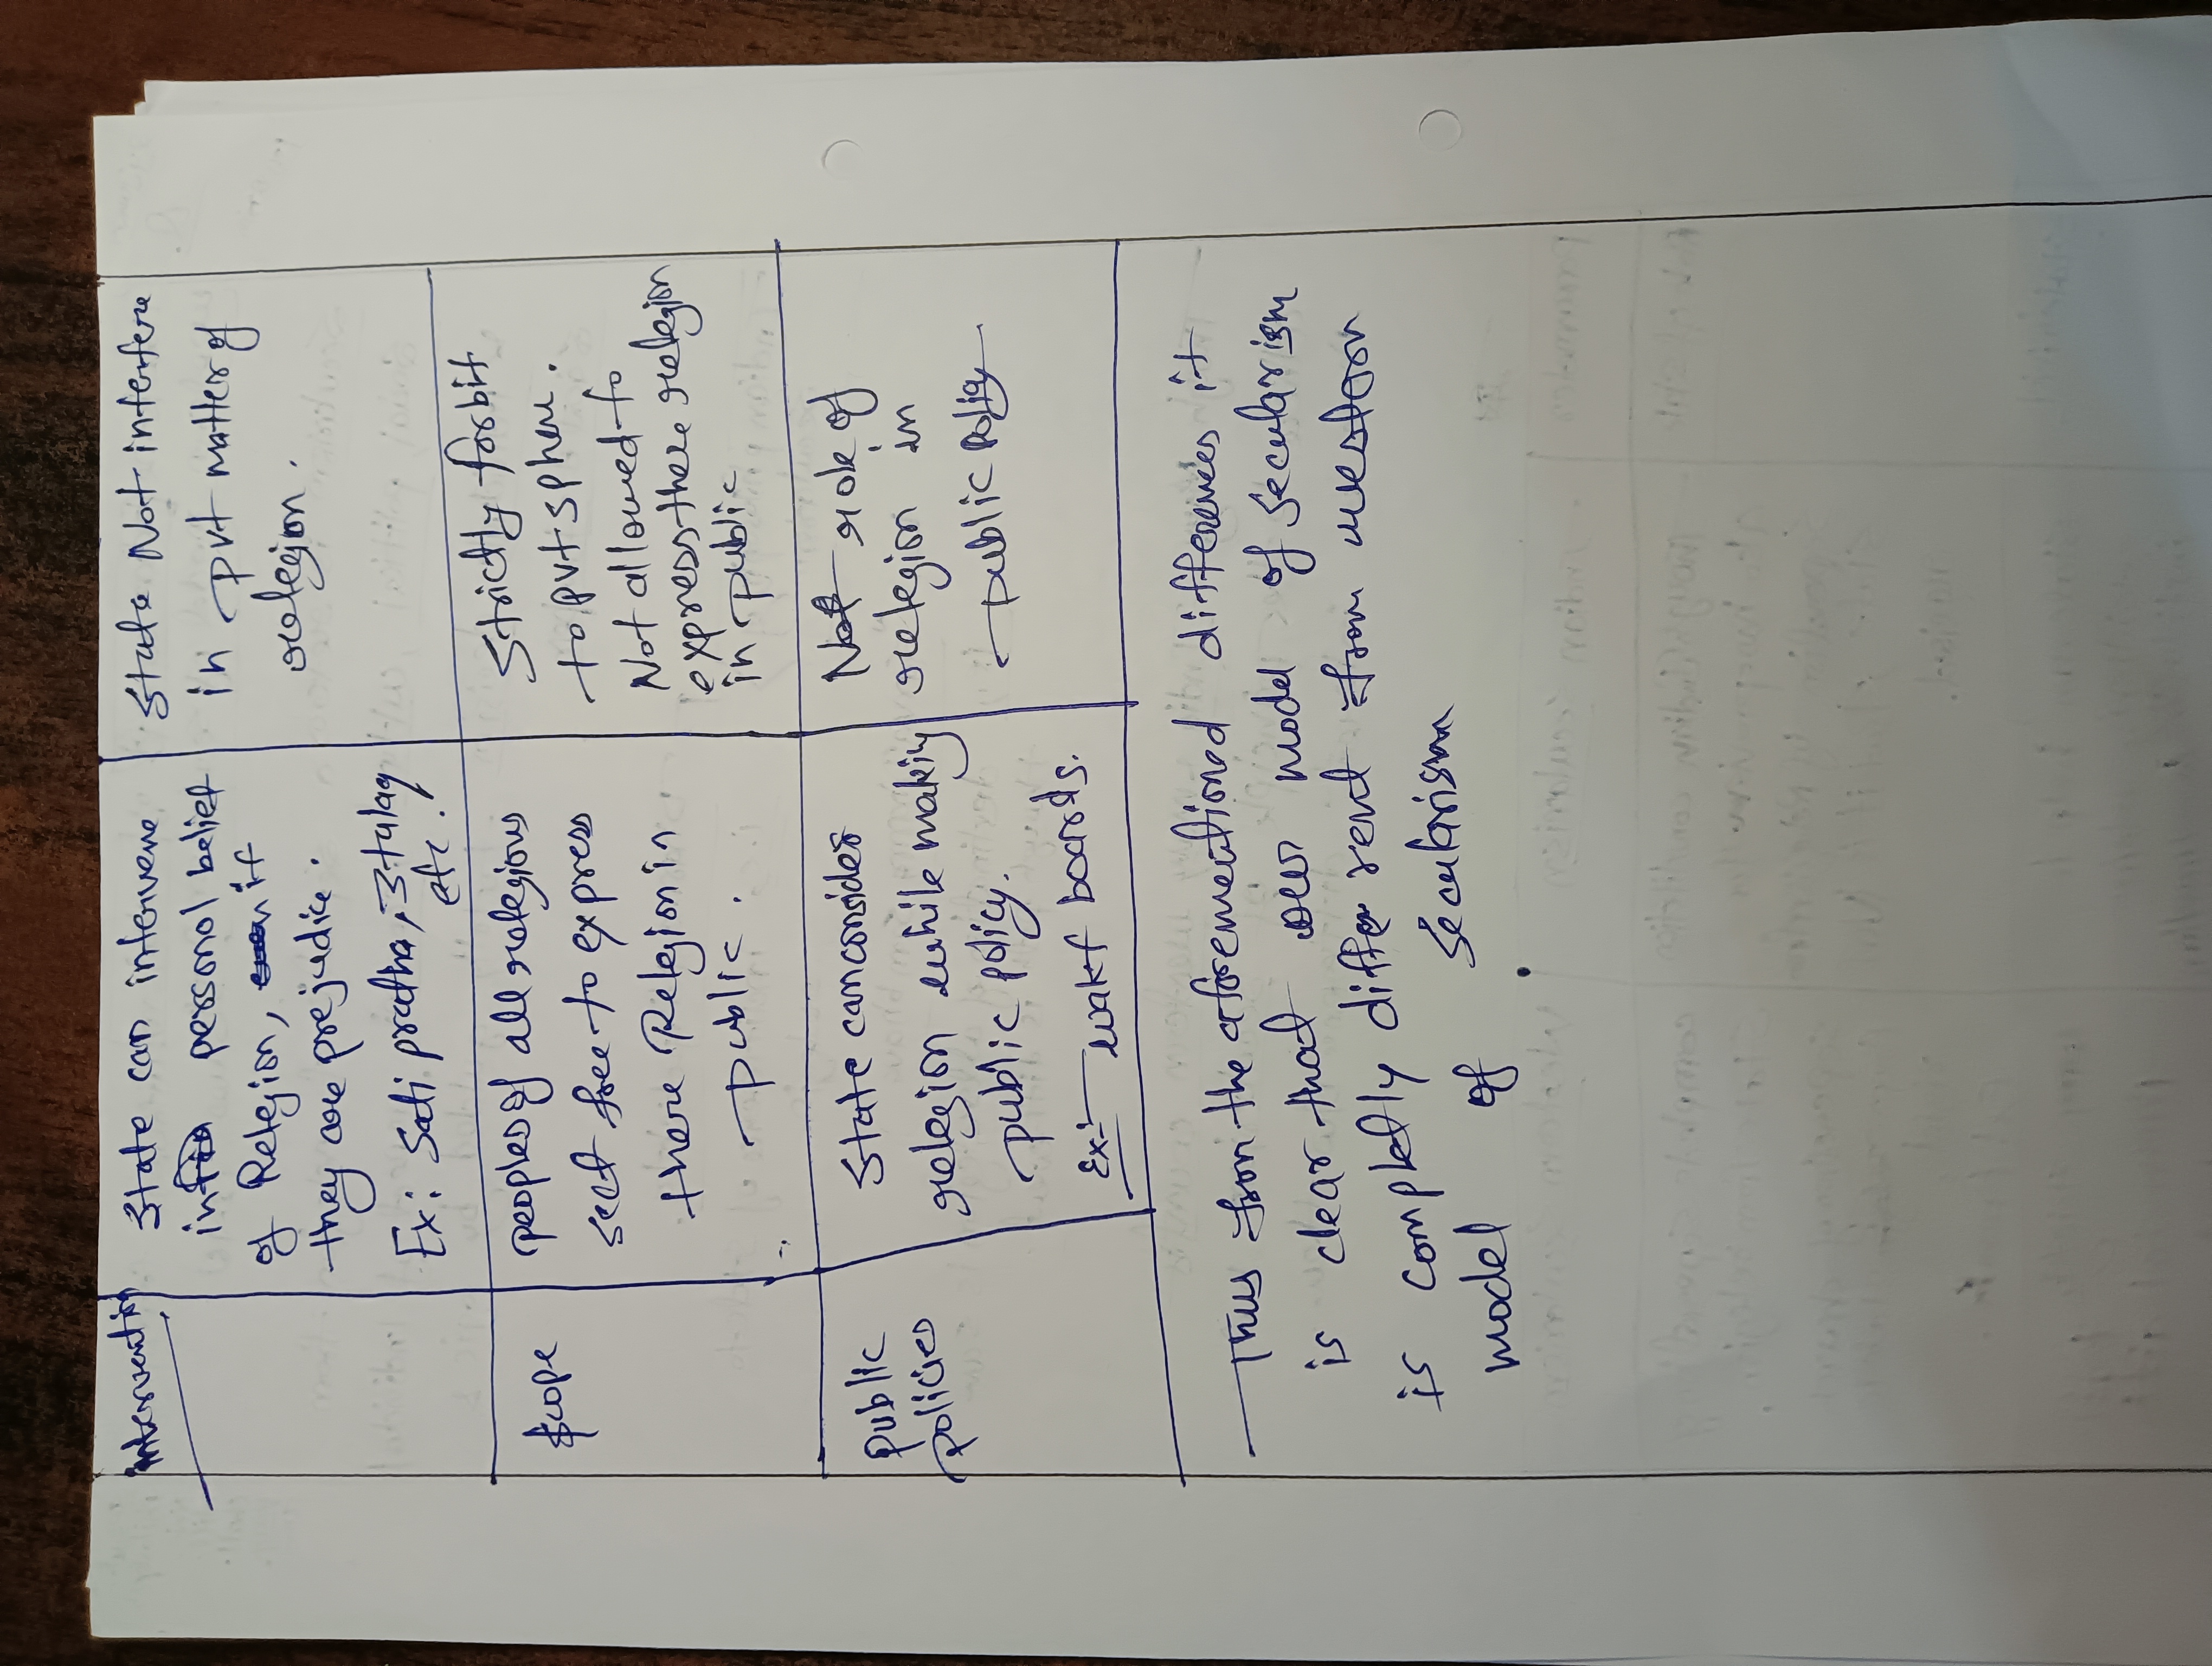 intervention
State can intervene
in personal belief
of Relegion, if
they are prejudice.
Ex: Sati pratha, 3 talaq
etc.
State Not interfere
in pvt matter of
relegion.
Scope
peoples of all relegious
sect free to express
there Relegion in
public.
Strictly forbit
to pvt sphere.
Not allowed to
express there relegion
in public
public
policies
State can consider
relegion while making
public policy.
Ex:- wakf boards.
Not role of
relegion in
public policy
Thus from the aforementioned differences it
is clear that our model of secularism
is completly different from western
model of secularism